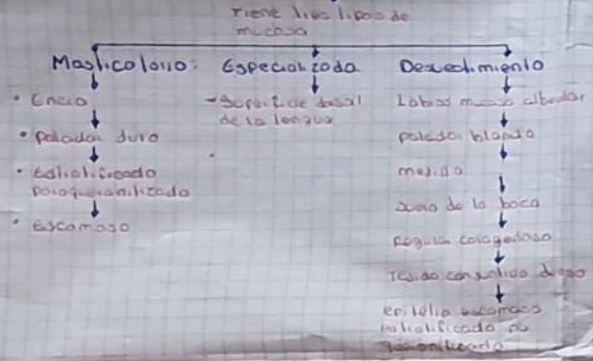 Tiene tres tipos de
mucosa
Masticatorio:
• Encia
• paladar duro
• Estratificado
paraqueranitizado
• Escamoso
Especializada
- Superficie dosal
de la lengua
Revestimiento
Labios mucosa
paladar blando
suelo de la boca
tejido conjuntivo
epitelio escamoso
estratificado no